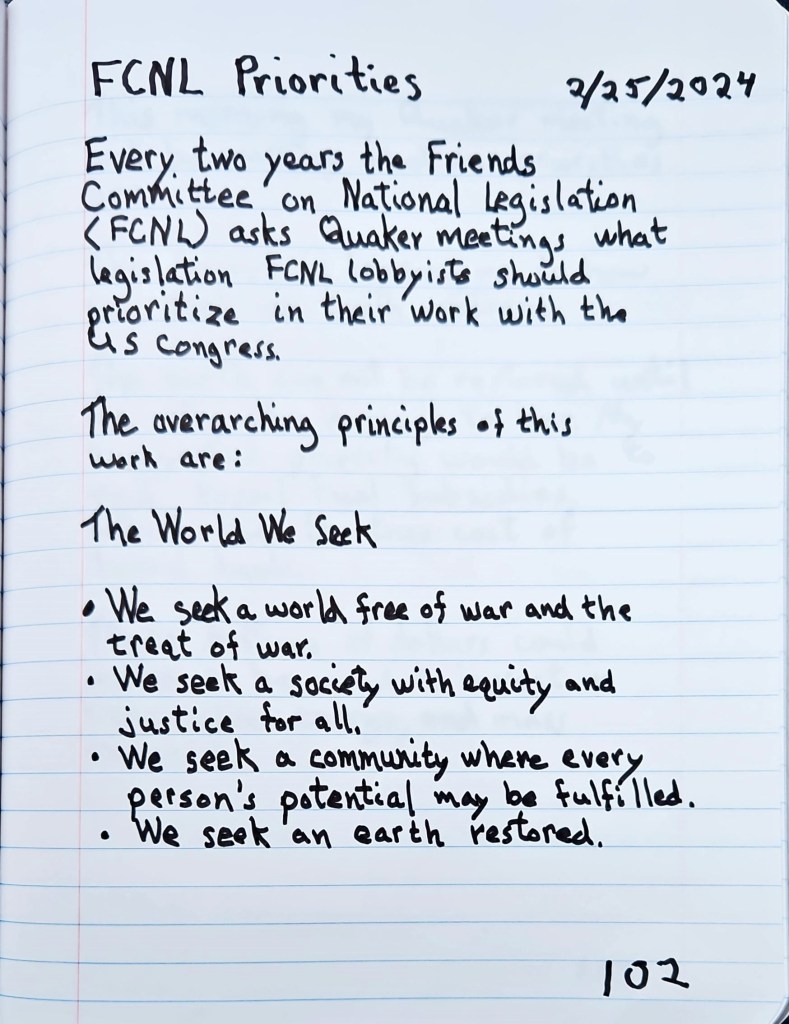 FCNL Priorities 2/25/2024
Every two years the Friends
Committee on National Legislation
(FCNL) asks Quaker meetings what
legislation FCNL lobbyists should
prioritize in their work with the
US Congress.
The overarching principles of this
work are:
The World We Seek
• We seek a world free of war and the
treat of war.
• We seek a society with equity and
justice for all.
• We seek a community where every
person's potential may be fulfilled.
• We seek an earth restored.
102